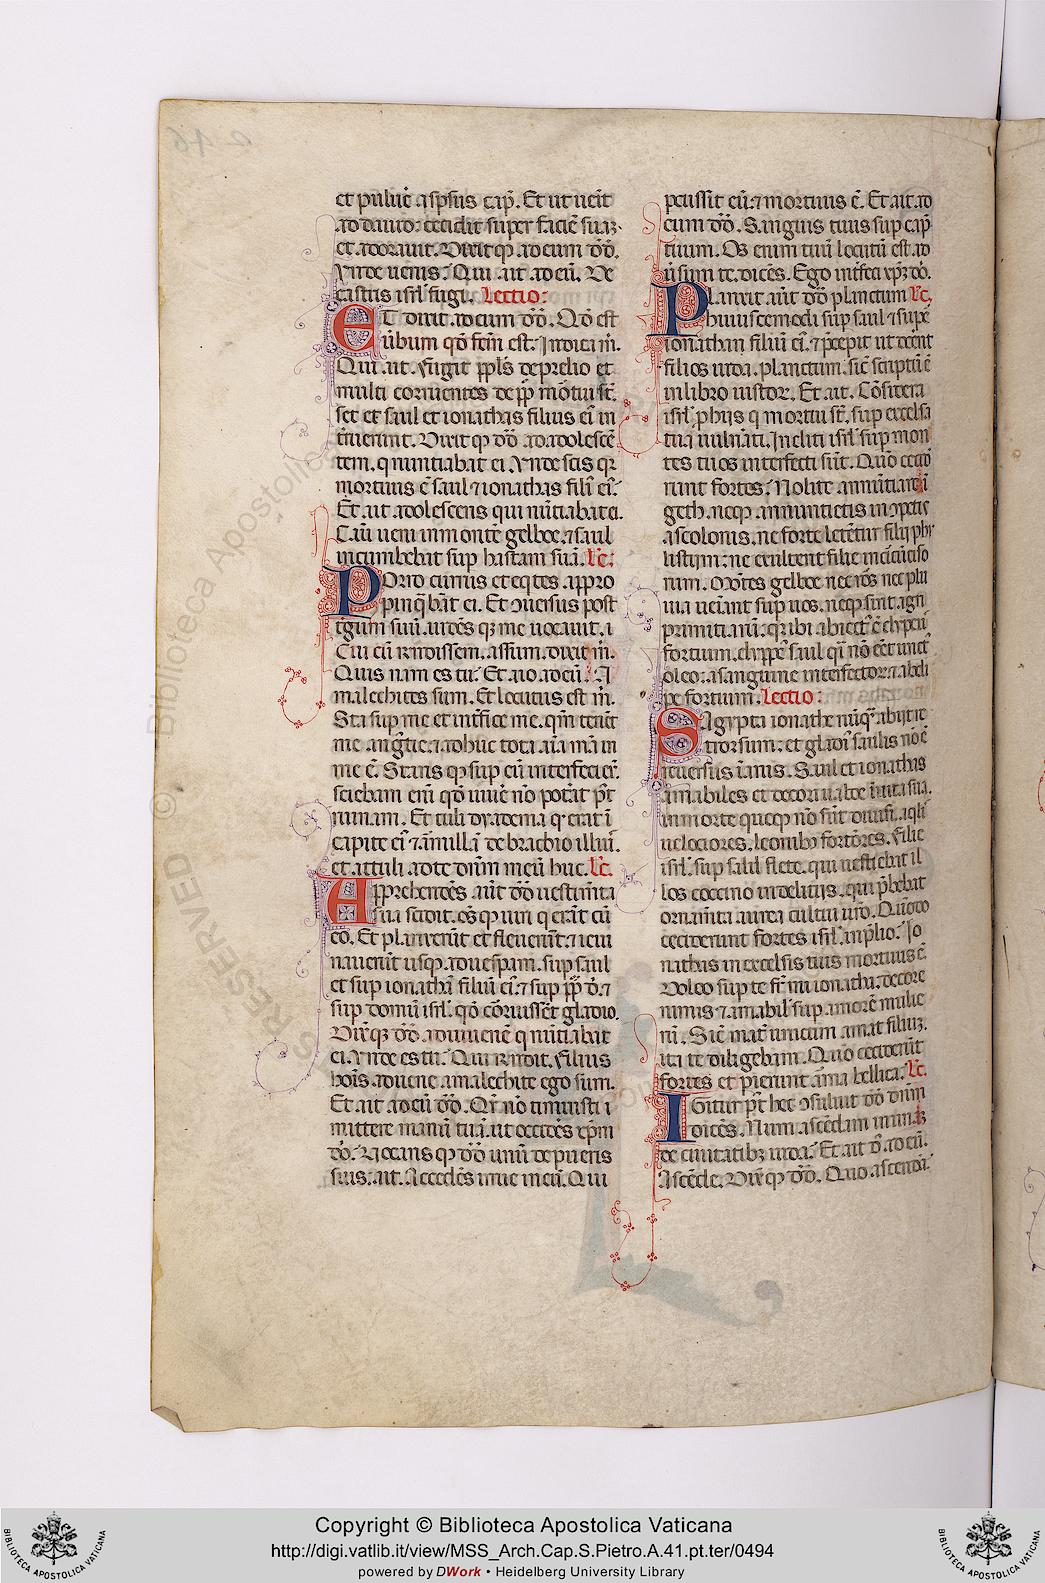 et puluẽ aspsus cap̃. Et ut uẽit
ad dauid: cecidit super faciẽ suaꝫ.
et adorauit. Dixit qꝫ ad eum dđ.
Vnde uenis? Qui ait ad eũ. De
castris isrł fugi. Lectio:
ET dixit ad eum dđ. Qđ est
ũbum qđ fcm̃ est? Indica m̃.
Qui ait. Fugit ppłs de prelio et
multi corruentes de pp̃ mõtui sĩt.
set et saul et ionathas filius eĩ in
tierunt. Dixit qꝫ dđ ad adolescẽ
tem. q nuntiabat ei. Vnde scis qꝛ
mortuus ẽ saul ⁊ ionathas fili eĩ?
Et ait adolescens qui nũtiabat ei.
Casu ueni in montẽ gelboe. ⁊ saul
incumbebat sup hastam suã. Łc.
POrro currus et eqtes appro
pinqbãt ei. Et ɔuersus post
tgum suũ. uidẽs qꝫ me uocauit. i
Cui cũ rñdissem. assum. dixit m̃.
Quis nam es tu? Et aio ad eũ. A
malechites sum. Et locutus est m̃.
Sta sup me et intfice me. qm̃ tenẽt
me angtie. ⁊ adhuc tota aĩa mã in
me ẽ. Stans qꝫ sup eũ interfeci eũ.
sciebam em̃ qđ uiuẽ nõ potãt p̃t
ruinam. Et tuli dyadema q erat ĩ
capite eĩ ⁊ armillã de brachio illiuĩ.
et attuli ad te dñm meũ huc. Łc.
Apprehendẽs aũt dđ uestimta
sua scidit. oẽsqꝫ uiri q erãt cũ
eo. Et planxerũt et fleuerũt. ⁊ ieiu
nauerũt usqꝫ ad uespam. sup saul
et sup ionathã filiũ eĩ. ⁊ sup pp̃ đ. ⁊
sup domũ isrł. qđ cõruissẽt gladio.
Dixit qꝫ dđ ad iuuenẽ q nũtiabat
ei. Vnde es tu? Qui rñdit. Filius
hoĩs aduene amalechite ego sum.
Et ait ad eũ dđ. Qr̃ nõ timuisti i
mittere manũ tuã. ut occidẽs xp̃m
dñ. Vocans qꝫ dđ unũ de pueris
suis. ait. Accedẽs irrue in eũ. Qui
pcussit eũ. ⁊ mortuus ẽ. Et ait ad
eum dđ. Sanguis tuus sup cap̃
tuum. Os enim tuũ locutũ est ad
ũsum te. dicẽs. Ego intfeci xp̃ꝫ dñ.
Planxit aũt dđ planctum Łc.
huiuscemodi sup saul ⁊ supẽ
ionathan filiũ eĩ. ⁊ p̃cepit ut docẽt
filios iuda. planctum. sic̃ scriptũ ẽ
in libro iustor. Et ait. Cõsidera
isrł. p hijs q mortui sĩt. sup excelsa
tua uulnãti. Incliti isrł sup mon
tes tuos interfecti sũt. Quõ cecid
runt fortes? Nolite annũtiare ĩ
geth. neqꝫ annuntietis in ɔpetis
ascolonis. ne forte letẽtur filij phy
listijm: ne exultent filie incircũciso
rum. Mõtes gelboe nec ros nec plu
uia ueniãt sup uos. neqꝫ sint agri
primitiarũ. qꝛ ibi abiectĩ ẽ clypeuĩ
fortium. clyppeĩ saul qĩ nõ eẽt unctĩ
oleo. a sanguine interfector. ⁊ ab adi
pe fortium. Lectio:
SAgypta ionathe nũqꝫ abijt re
trorsum: et gladĩ saulis nõ ẽ
reuersus ĩanis. Saul et ionathas
amabiles et decori ualde in uita sua.
in morte queqꝫ nõ sũt diuisi. aqlĩ
uelociores. leonibꝫ fortiores. Filie
isrł. sup saul flete. qui uestiebat ił
los coccino in delicijs. qui p̃bebat
ornamta aurea cultui uro. Quõdo
ceciderunt fortes isrł. in p̃lio? Io
nathas in excelsis tuis mortuus ẽ.
Doleo sup te fr̃ mi ionatha: decore
nimis. ⁊ amabilĩ sup amorẽ mulie
rũ. Sic̃ mat̃ unicum amat filiuꝫ.
ita te diligebam. Quõ ceciderũt
fortes et pierunt arma bellica. Łc.
IGitur p̃t hec ɔsuluit dđ dñm
dicẽs. Num ascẽdam in unaꝫ
de ciuitatibꝫ iuda? Et ait dñ. ad eũ.
Ascẽde. Dixit qꝫ dđ. Quo ascendã?
© Biblioteca Apostolica
RESERVED
Copyright © Biblioteca Apostolica Vaticana
http://digi.vatlib.it/view/MSS_Arch.Cap.S.Pietro.A.41.pt.ter/0494
powered by DWork • Heidelberg University Library
BIBLIOTECA APOSTOLICA VATICANA
BIBLIOTECA APOSTOLICA VATICANA